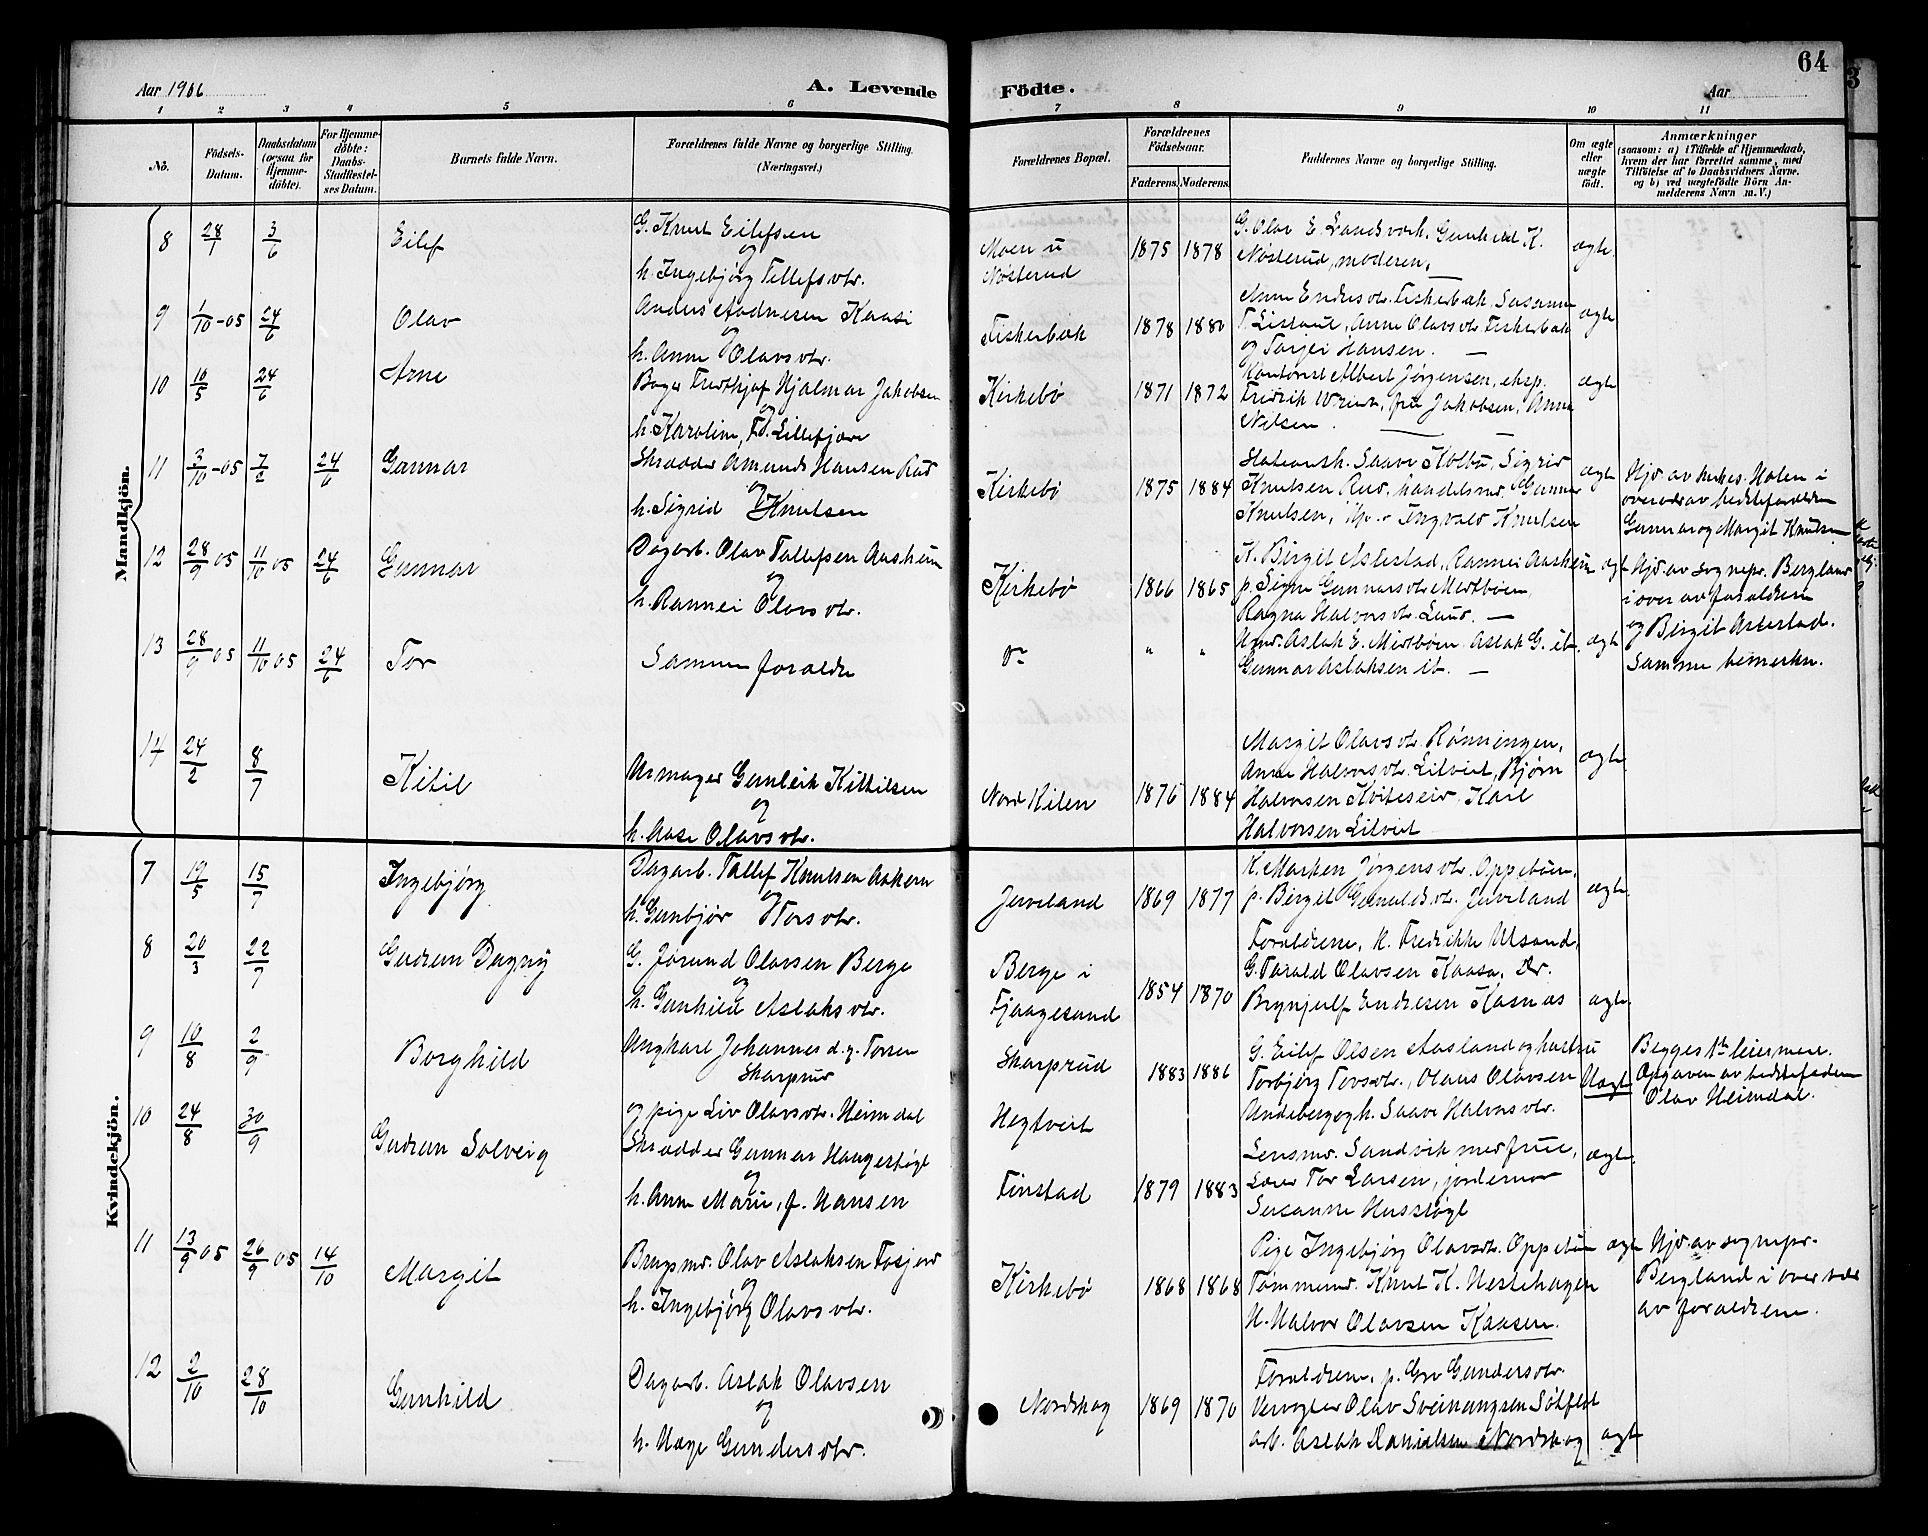 64
3
Aar 1906
A. Levende
Födte.
Aar
1 2 3 4 5 6 7 8 9 10 11
No.
Födsels-Datum.
Daabsdatum (ogsaa for Hjemme-döbte).
For Hjemme-döbte: Daabs-Stadfæstel-ses Datum.
Barnets fulde Navn.
Forældrenes fulde Navne og borgerlige Stilling. (Næringsvei.)
Forældrenes Bopæl.
Forældrenes Födselsaar.
Faderens. Moderens.
Faddernes Navne og borgerlige Stilling.
Om ægte eller uægte födt.
Anmærkninger
(saasom: a) i Tilfælde af Hjemmedaab, hvem der har forrettet samme, med Tilföielse af to Daabsvidners Navne. og b) ved uægtefödte Börn An-melderens Navn m.V.)
Mandkjön.
8 28/1 3/6 Eilef
G. Knut Eilefsen
og
h. Ingebjørg Tellefsdtr.
Moen u
Nøsterud
1875 1878
G. Olav E. Landsverk, Gunhild K.
Nøsterud, moderen.
ægte
9 1/10-05 24/6 Olav
Anders Aadnesen Kaasi
og
h. Anne Olavsdtr.
Fiskerbæk
1878 1880
Anne Endresdtr. Fiskerbæk, Susanne
T. Listaul, Anne Olavsdtr. Fiskerbæk
og Tarjei Hansen.
ægte
10 10/5 24/6 Arne
Bager Fredthjof Hjalmar Jakobsen
og
h. Karoline, f. Lillefjære
Kirkebø
1871 1872
Kontorist Albert Jørgensen, eksp.
Fredrik Wriedt, frue Jakobsen, Anna
Nilsen.
ægte
11 3/10-05 7/2 24/6 Gunnar
Skrædder Amund Hansen Rud
og
h. Sigrid Knutsen
Kirkebø
1875 1884
Stationsh. Saave Holbø, Sigrid
Knutsen Rud, handelsmd. Gunnar
Knutsen, Ingvald Knutsen
ægte
Hjd. av kirkes. Holen i
overvær av bedsteforældrene
Gunnar og Margit Knutsen
12 28/9 05 11/10 05 24/6 Gunnar
Dagarb. Olav Tallefsen Aasheim
og
h. Rannei Olavsdtr.
Kirkebø
1866 1865
K. Birgit Aslestad, Rannei Aasheim
p. Signe Gunnarsdtr. Midtbøen
Ragna Halvorsdtr. Lund.
ægt
Hjd. av sognepr. Bergland
i over av forældrene
og Birgit Aslestad.
13 28/9 05 11/10 05 24/6 Tor
Samme forældre
Do " "
Aslak E. Midtbøen, Aslak G. ib.
Gunnar Aslaksen ib.
ægte
Samme bemerkn.
14 24/2 8/7 Kitil
Urmager Gunleik Kittilsen
og
h. Aase Olavsdtr.
Nord Kilen
1876 1884
Margit Olavsdtr. Rønningen,
Anne Halvorsdtr. Lilveit, Bjørn
Halvorsen Kviteseid, Karl
Halvorsen Lilveit
ægte
Kvindekjön.
7 19/5 15/7 Ingebjørg
Dagarb. Tallef Knutsen Askern
og
h. Gunbjør Torsdtr.
Juveland
1869 1877
K. Marken Jørgensdtr. Oppebøen,
p. Birgit Gunulvsdtr. Juveland
ægte.
8 20/3 22/7 Gudrun Dagny
G. Jørund Olavsen Berge
og
h. Gunhild Aslaksdtr.
Berge i
Fjaagesund
1854 1870
Forældrene, K. Fredrikke Ulsand,
G. Tarald Olavsen Kaasa, Dr.
Brynjulf Endresen Hasnes
ægte.
9 10/8 2/9 Borghild
Ungkarl Johannes d.y. Torsen
Skarprud
og pige Liv Olavsdtr. Heimdal
Skarprud
Hegtveit
1883 1886
G. Eilef Olsen Aasland og hustru
Torbjørg Tovsdtr., Olaus Olavsen
Undeberg og h. Saave Halvorsdtr.
Uægte
Begges 1ste leiermaal.
Opgaven av bedstefaderen
Olav Heimdal.
10 24/8 30/9 Gudrun Solveig
Skrædder Gunnar Haugestøyl
og
h. Anne Marie, f. Hansen
Finstad
1879 1883
Lensmd. Sandvik med frue,
Lærer Tor Larsen, jordemor
Susanne Husstøyl
ægte.
11 13/9 05 26/9 05 14/10 Margit
Brugsmd. Olav Aslaksen Fosjord
og
h. Ingebjørg Olavsdtr.
Kirkebø
1868 1868
Pige Ingebjørg Olavsdtr. Oppebøen
Tømmermd. Knut K. Nestehagen
U. Halvor Olavsen Kaasen.
ægte
Hjd. av sognepr.
Bergland i overvær
av forældrene.
12 2/10 28/10 Gunhild
Dagarb. Aslak Olavsen
og
h. Hæge Gundersdtr.
Nordskog
1869 1870
Forældrene, p. Gro Gundersdtr.
Veivogter Olav Sveinungsen Sølfest
arb. Aslak Danielsen Nordskog
ægte